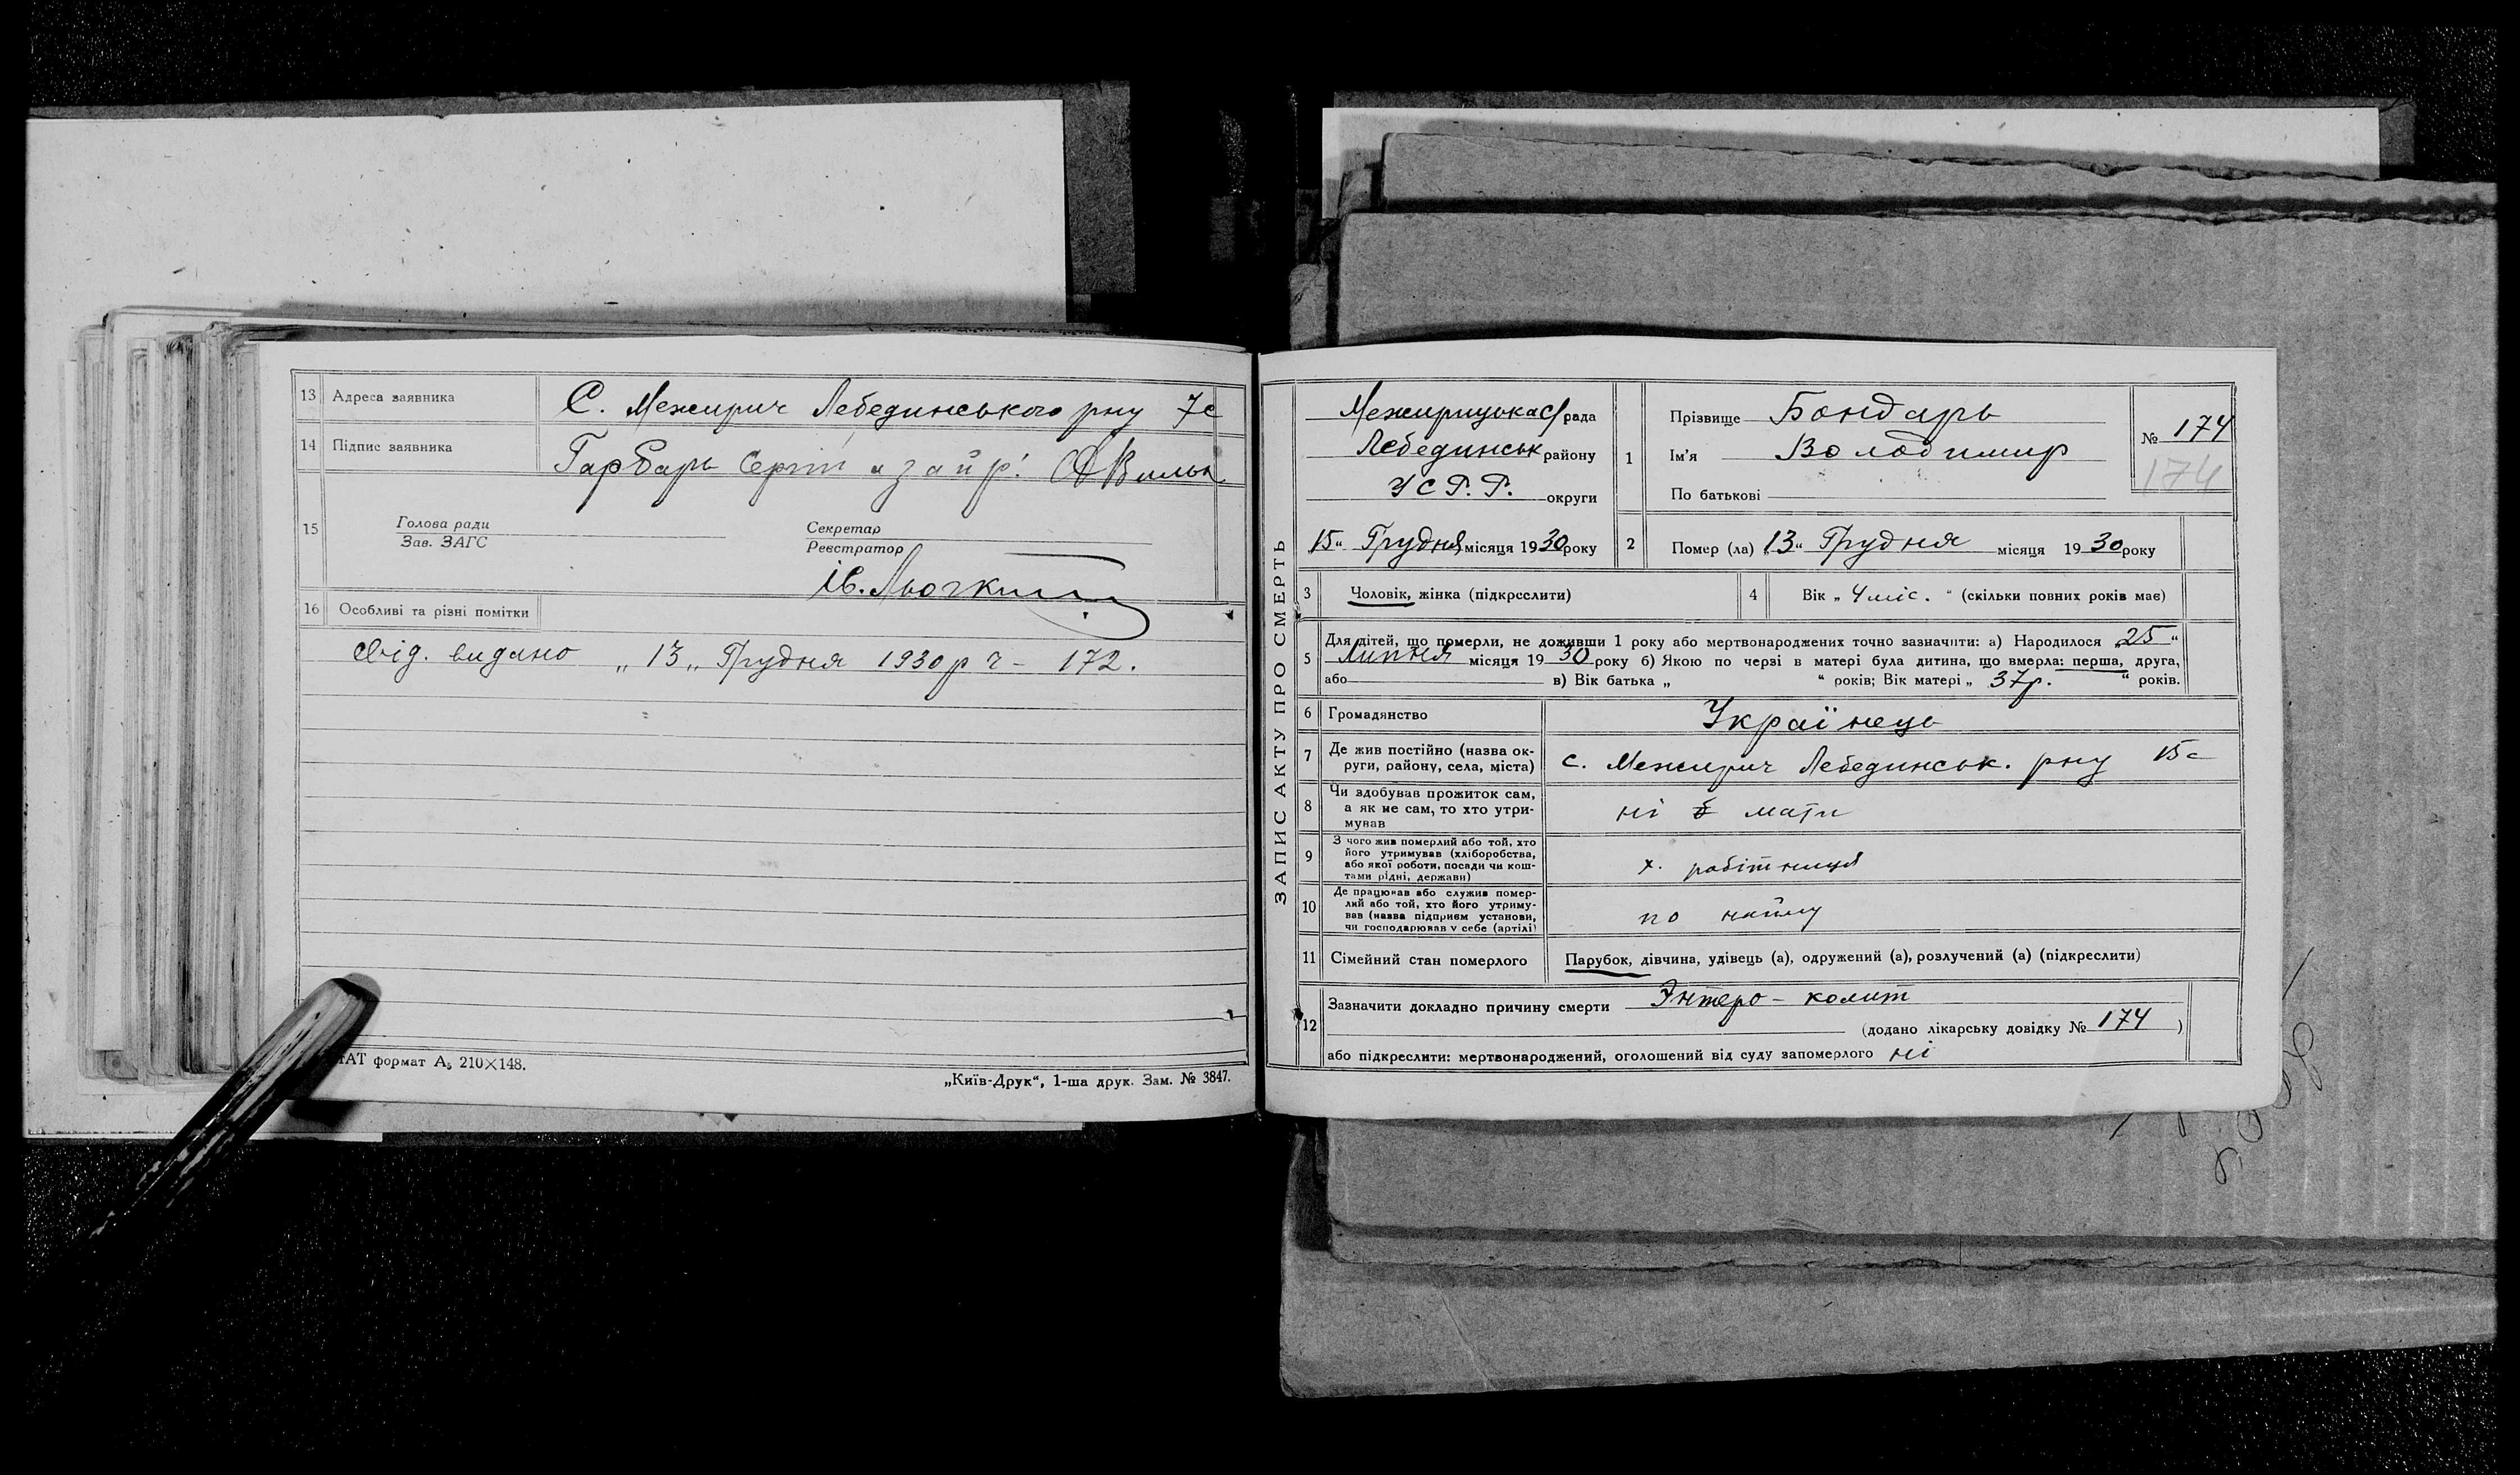 13 Адреса заявника С. Межирич Лебединського рну 7с
14 Підпис заявника Гарбарь Сергій
15 Голова ради
Зав. ЗАГС
Секретар
Реєстратор
ів.
16 Особливі та різні помітки
свід. видано „13„ Грудня 1930 р ч – 172.
ТАТ формат А5 210×148.
„Київ-Друк“, 1-ша друк. Зам. № 3847.
ЗАПИС АКТУ ПРО СМЕРТЬ
Межирицька с/рада
Лебединськ району
УСРР. округи
15“ Грудня місяця 1930 року
1 Прізвище Бондарь
Ім’я Володимир
По батькові
№ 174
174
2 Помер (ла) 13“ Грудня місяця 1930 року
3 Чоловік, жінка (підкреслити)
4 Вік „ 4 міс. “ (скільки повних років має)
5 Для дітей, що померли, не доживши 1 року або мертвонароджених точно зазначити: а) Народилося „25“
Липня місяця 1930 року б) Якою по черзі в матері була дитина, що вмерла: перша, друга,
або в) Вік батька „ “ років; Вік матері „ 37р. “ років.
6 Громадянство Українець
7 Де жив постійно (назва ок-
руги, району, села, міста) с. Межирич Лебединськ. рну 15с
8 Чи здобував прожиток сам,
а як не сам, то хто утри-
мував ні мати
9 З чого жив померлий або той, хто
його утримував (хліборобства,
або якої роботи, посади чи кош-
тами рідні, держави) х. робітниця
10 Де працював або служив помер-
лий або той, хто його утриму-
вав (назва підприєм установи,
чи господарював у себе (артілі) по найму
11 Сімейний стан померлого Парубок, дівчина, удівець (а), одружений (а), розлучений (а) (підкреслити)
12 Зазначити докладно причину смерти Энтеро – колит
(додано лікарську довідку № 174 )
або підкреслити: мертвонароджений, оголошений від суду запомерлого ні